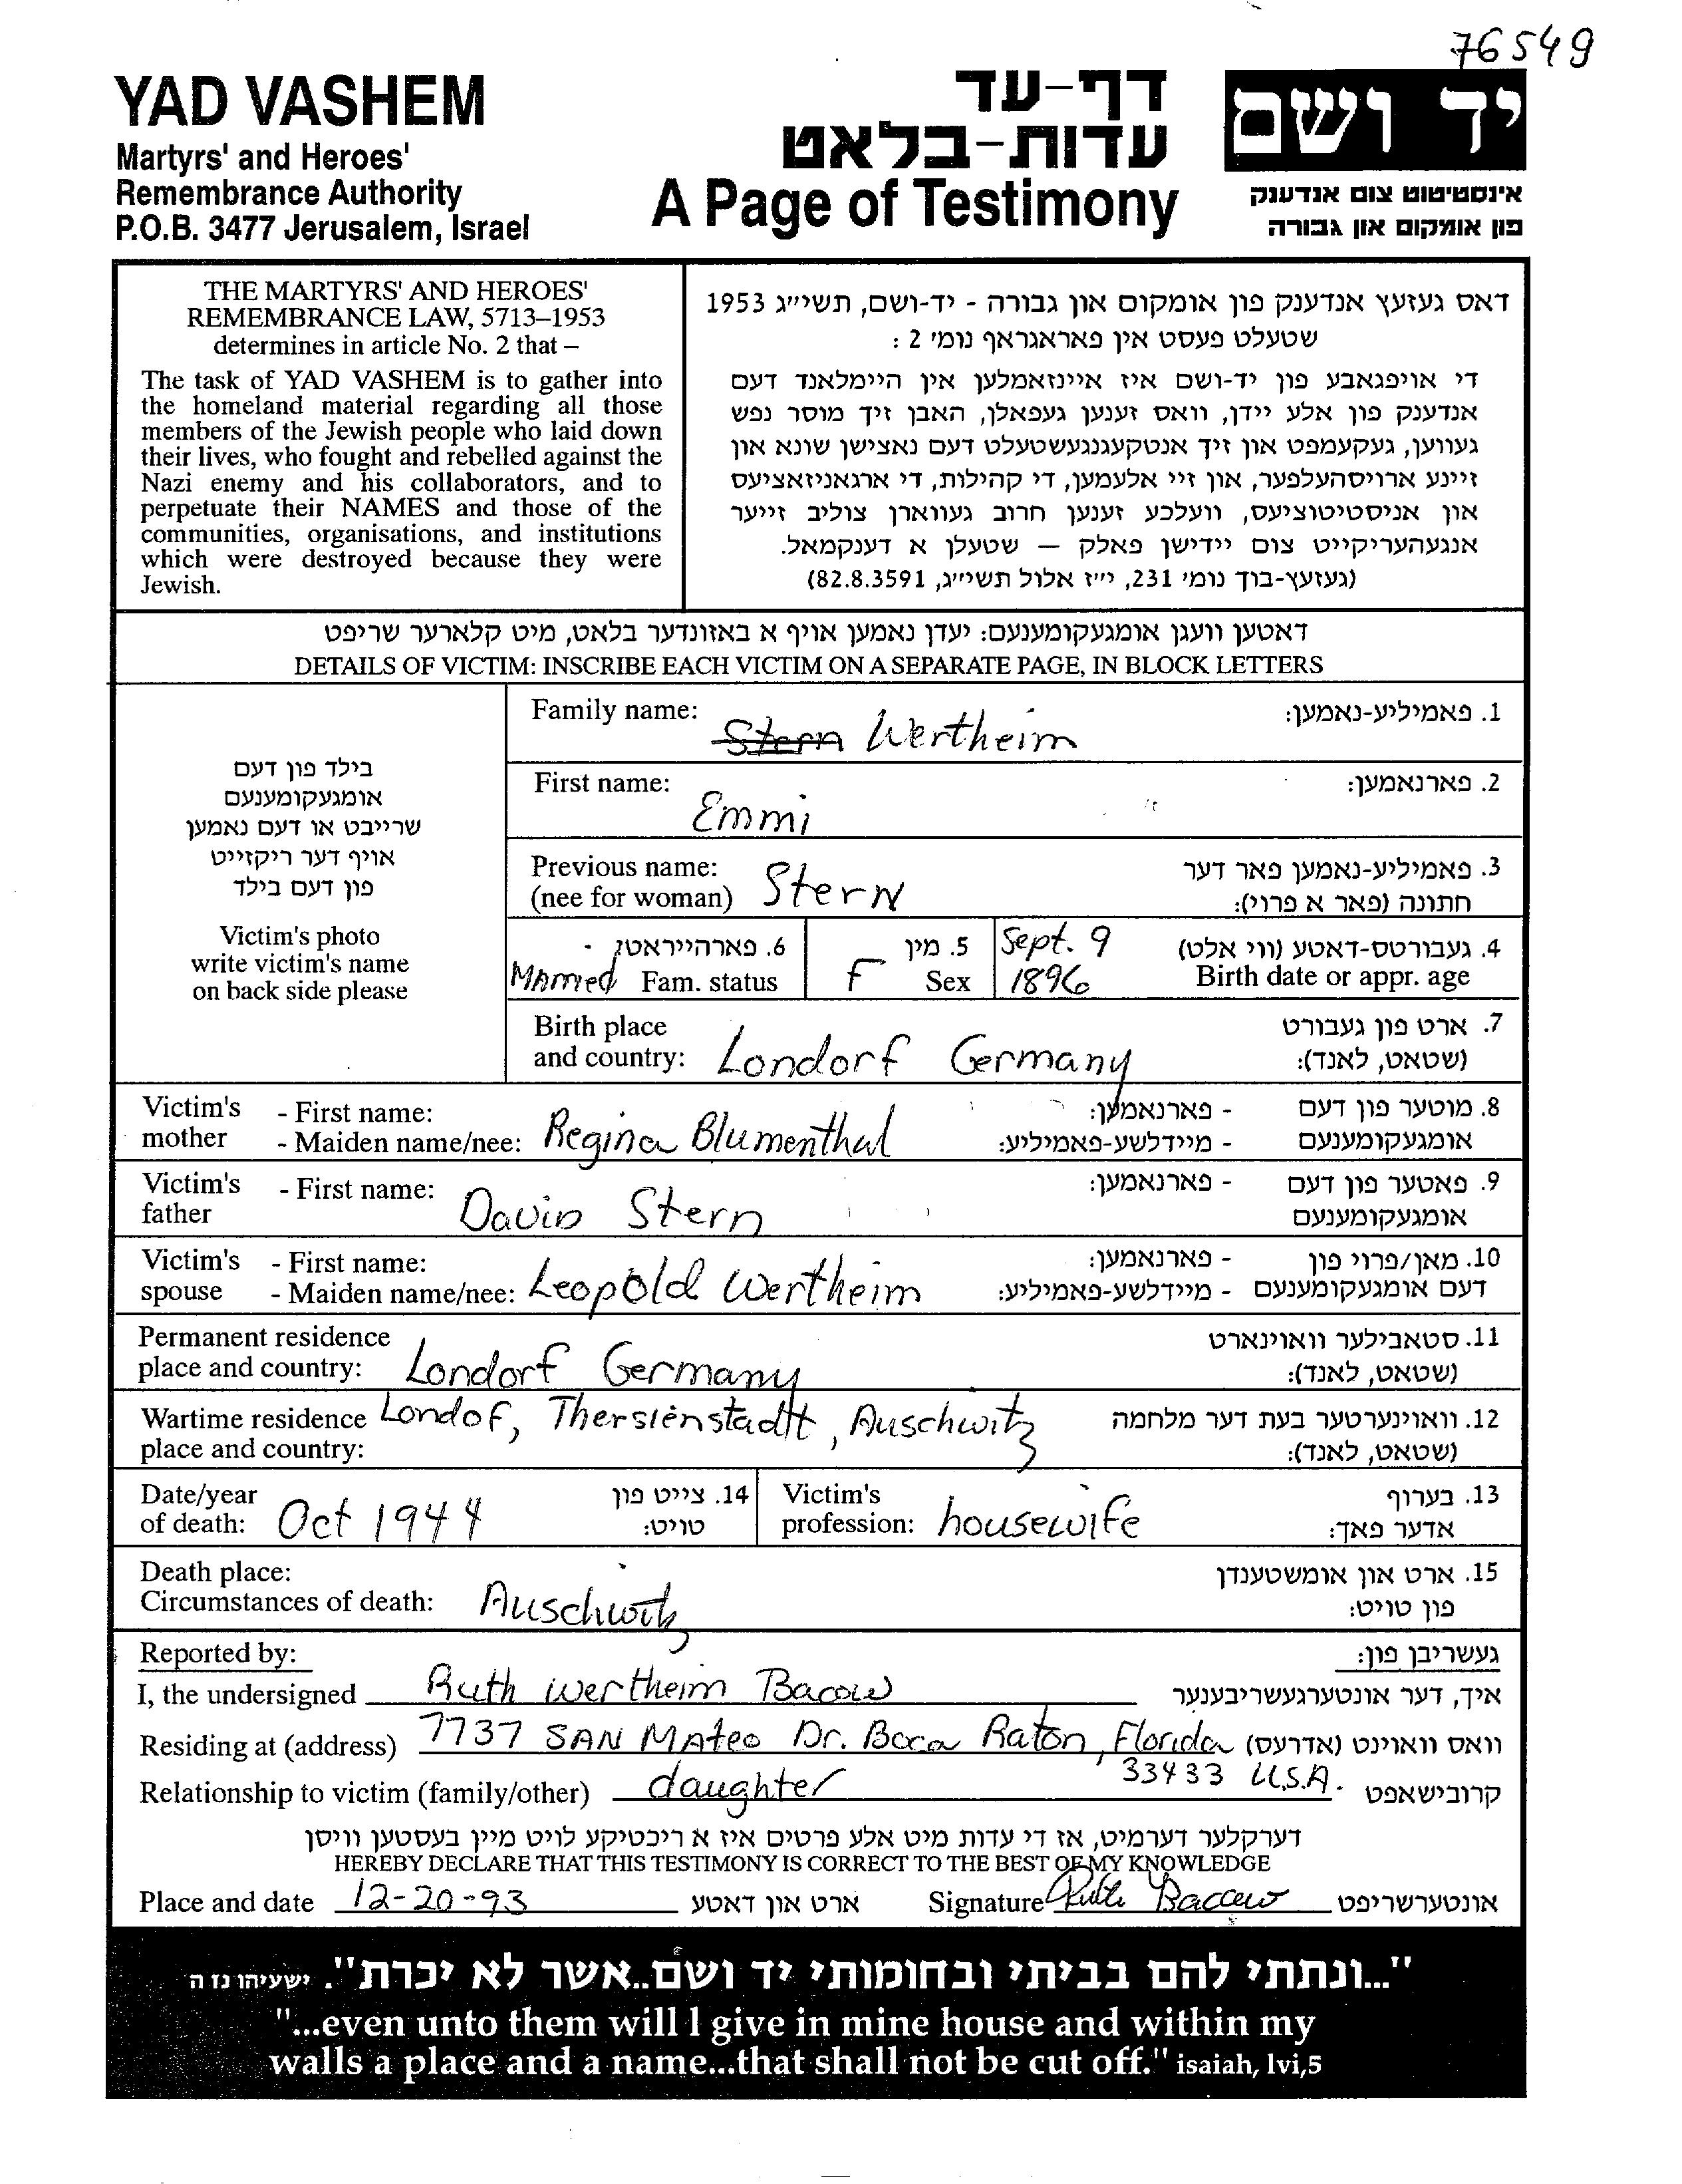 76549
YAD VASHEM
Martyrs' and Heroes'
Remembrance Authority
P.O.B. 3477 Jerusalem, Israel
דף-עד
עדות-בלאט
A Page of Testimony
יד ושם
אינסטיטוט צום אנדענק
פון אומקום און גבורה
THE MARTYRS' AND HEROES'
REMEMBRANCE LAW, 5713–1953
determines in article No. 2 that –
The task of YAD VASHEM is to gather into
the homeland material regarding all those
members of the Jewish people who laid down
their lives, who fought and rebelled against the
Nazi enemy and his collaborators, and to
perpetuate their NAMES and those of the
communities, organisations, and institutions
which were destroyed because they were
Jewish.
דאס געזעץ אנדענק פון אומקום און גבורה - יד-ושם, תשי״ג 1953
שטעלט פעסט אין פאראגראף נומ׳ 2 :
די אויפגאבע פון יד-ושם איז איינזאמלען אין היימלאנד דעם
אנדענק פון אלע יידן, וואס זענען געפאלן, האבן זיך מוסר נפש
געווען, געקעמפט און זיך אנטקעגנגעשטעלט דעם נאצישן שונא און
זיינע ארויסהעלפער, און זיי אלעמען, די קהילות, די ארגאניזאציעס
און אניסטיטוציעס, וועלכע זענען חרוב געווארן צוליב זייער
אנגעהעריקייט צום יידישן פאלק — שטעלן א דענקמאל.
(געזעץ-בוך נומ׳ 231, י״ז אלול תשי״ג, 82.8.3591)
דאטען וועגן אומגעקומענעם: יעדן נאמען אויף א באזונדער בלאט, מיט קלארער שריפט
DETAILS OF VICTIM: INSCRIBE EACH VICTIM ON A SEPARATE PAGE, IN BLOCK LETTERS
בילד פון דעם
אומגעקומענעם
שרייבט או דעם נאמען
אויף דער ריקזייט
פון דעם בילד
Victim's photo
write victim's name
on back side please
Family name: Stern Wertheim 1. פאמיליע-נאמען:
First name: Emmi 2. פארנאמען:
Previous name: 3. פאמיליע-נאמען פאר דער
(nee for woman) Stern חתונה (פאר א פרוי):
6. פארהייראט; 5. מין Sept. 9 4. געבורטס-דאטע (ווי אלט)
Married Fam. status F Sex 1896 Birth date or appr. age
Birth place 7. ארט פון געבורט
and country: Londorf Germany (שטאט, לאנד):
Victim's - First name: - פארנאמען: 8. מוטער פון דעם
mother - Maiden name/nee: Regina Blumenthal - מיידלשע-פאמיליע: אומגעקומענעם
Victim's - First name: - פארנאמען: 9. פאטער פון דעם
father David Stern אומגעקומענעם
Victim's - First name: - פארנאמען: 10. מאן/פרוי פון
spouse - Maiden name/nee: Leopold Wertheim - מיידלשע-פאמיליע: דעם אומגעקומענעם
Permanent residence 11. סטאבילער וואוינארט
place and country: Londorf Germany (שטאט, לאנד):
Wartime residence Londof, Thersienstadtt, Auschwitz 12. וואוינערטער בעת דער מלחמה
place and country: (שטאט, לאנד):
Date/year 14. צייט פון Victim's 13. בערוף
of death: Oct 1944 טויט: profession: housewife אדער פאך:
Death place: 15. ארט און אומשטענדן
Circumstances of death: Auschwitz פון טויט:
Reported by: געשריבן פון:
I, the undersigned Ruth Wertheim Bacow איך, דער אונטערגעשריבענער
Residing at (address) 7737 SAN MAteo Dr. Boca Raton, Florida וואס וואוינט (אדרעס)
33433 U.S.A.
Relationship to victim (family/other) daughter קרובישאפט
דערקלער דערמיט, אז די עדות מיט אלע פרטים איז א ריכטיקע לויט מיין בעסטען וויסן
HEREBY DECLARE THAT THIS TESTIMONY IS CORRECT TO THE BEST OF MY KNOWLEDGE
Place and date 12-20-93 ארט און דאטע Signature Ruth Bacow אונטערשריפט
"...ונתתי להם בביתי ובחומותי יד ושם..אשר לא יכרת". ישעיהו נו ה
"...even unto them will I give in mine house and within my
walls a place and a name...that shall not be cut off." isaiah, lvi,5